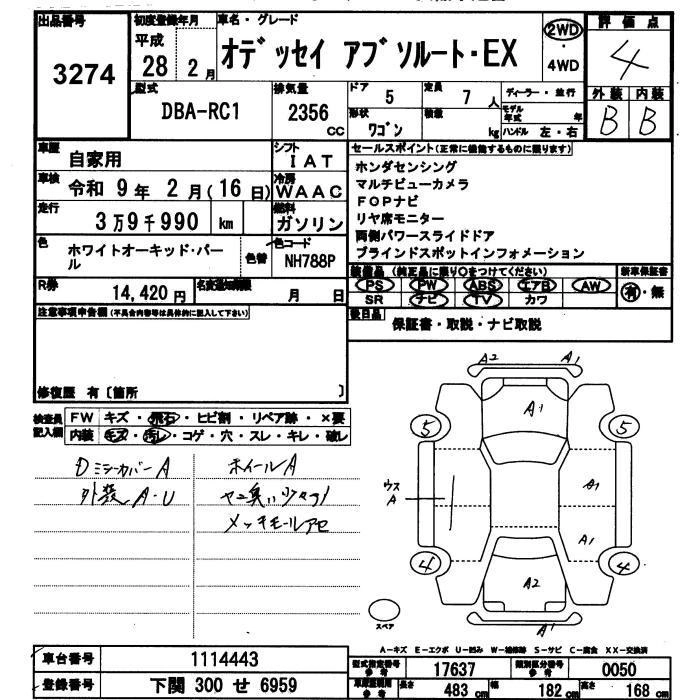 出品番号
3274
初度登録年月
平成
28 2 月
車名・グレード
オデッセイ アブソルート・EX
2WD
・
4WD
評価点
4
外装 内装
B B
型式
DBA-RC1
排気量
2356
cc
ドア
5
定員
7 人
形状
ワゴン
積載
kg
ディーラー・並行
モデル年式
年
ハンドル 左・右
車歴
自家用
シフト
IAT
車検
令和 9 年 2 月(16 日)
冷房
WAAC
走行
3万9千990 km
燃料
ガソリン
色
ホワイトオーキッド・パール
色替
色コード
NH788P
R券
14,420 円
名変期限
月 日
セールスポイント(正常に機能するものに限ります)
ホンダセンシング
マルチビューカメラ
FOPナビ
リヤ席モニター
両側パワースライドドア
ブラインドスポットインフォメーション
装備品 (純正品に限り○をつけてください)
新車保証書
PS PW ABS エアB AW
SR ナビ TV カワ
有・無
後日品
保証書・取説・ナビ取説
注意事項申告欄(不具合内容等は具体的に記入して下さい)
修復歴 有〔箇所 〕
検査員記入欄
FW キズ・飛石・ヒビ割・リペア跡・×要
内装 キズ・汚レ・コゲ・穴・スレ・キレ・破レ
DミラーカバーA
外装 A・U
ホイールA
ヤニ臭い少々有
メッキモールアセ
A2 A1
A1
5 5
ウス
A
A1
A1
4 4
A2
A1
スペア
A-キズ E-エクボ U-凹み W-補修跡 S-サビ C-腐食 XX-交換済
車台番号
1114443
登録番号
下関 300 せ 6959
型式指定番号
参考
17637
類別区分番号
参考
0050
参考
長さ
483 cm
幅
182 cm
高さ
168 cm